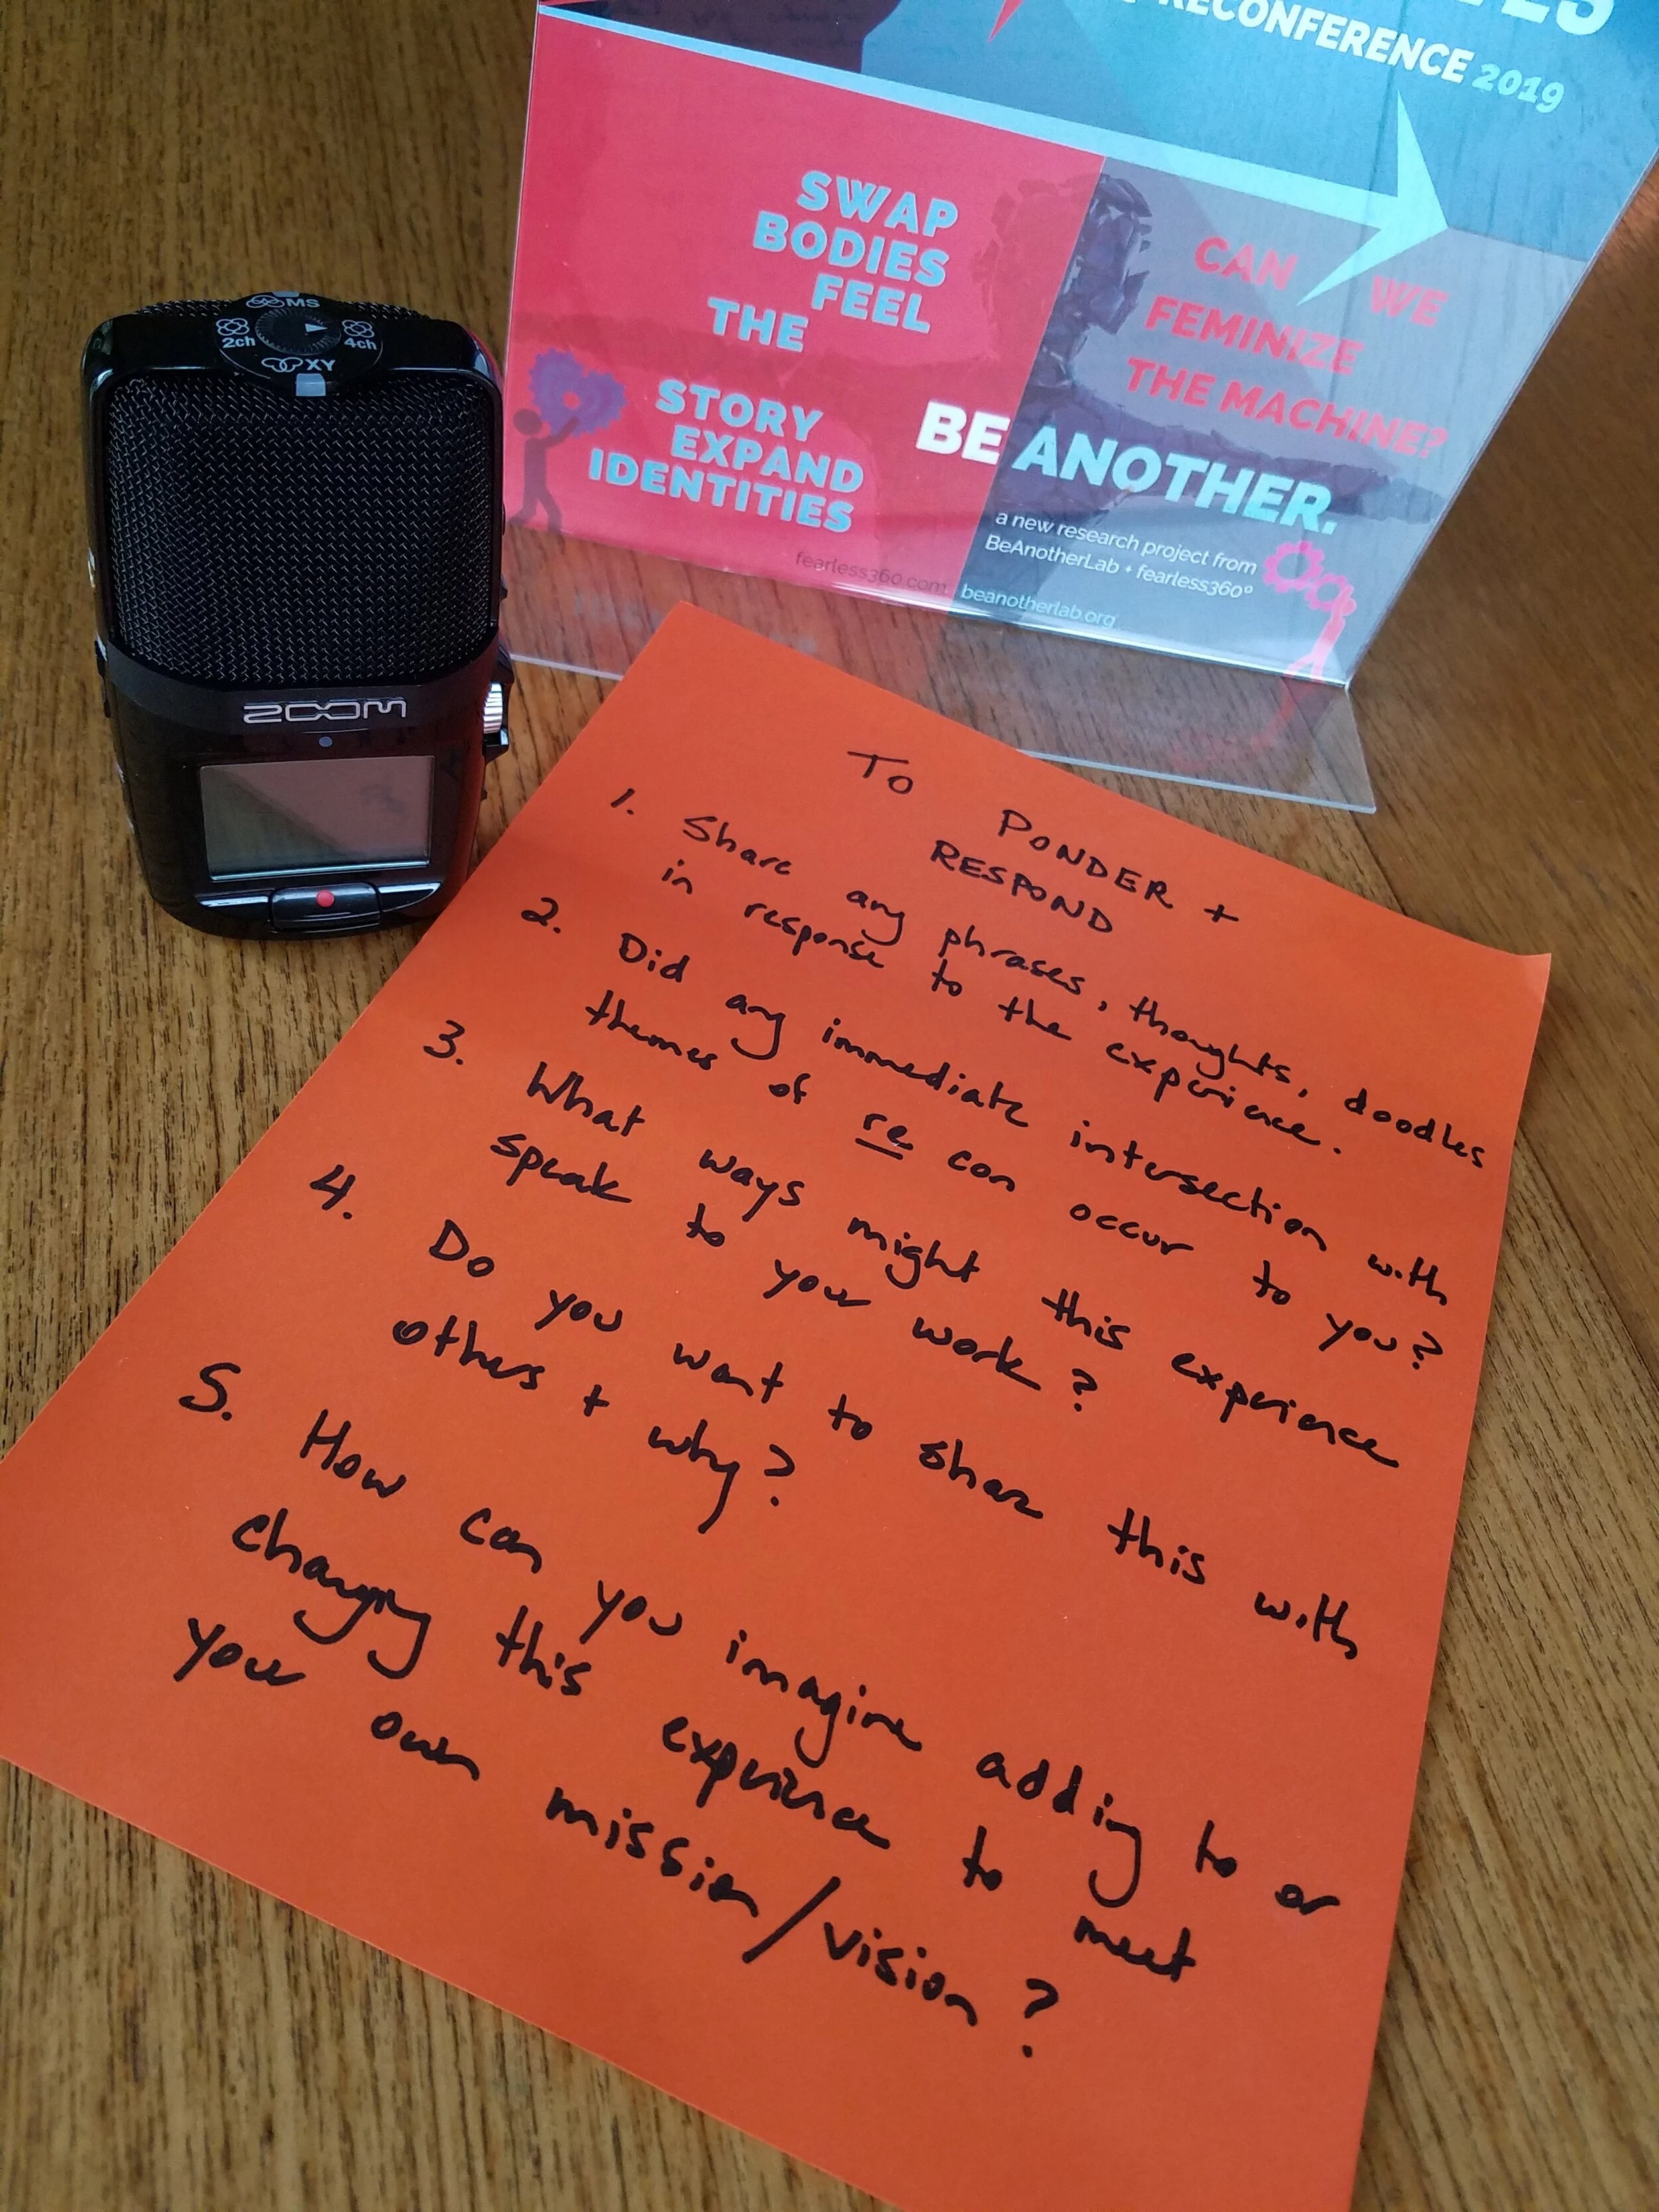 RECONFERENCE 2019
SWAP
BODIES
FEEL
THE
STORY
EXPAND
IDENTITIES
CAN WE
FEMINIZE
THE MACHINE?
BE ANOTHER.
a new research project from
BeAnotherLab + fearless360°
fearless360.com
beanotherlab.org
MS
2ch
4ch
XY
ZOOM
TO PONDER +
RESPOND
1. Share any phrases, thoughts, doodles
in response to the experience.
2. Did any immediate intersection with
themes of re con occur to you?
3. What ways might this experience
speak to your work?
4. Do you want to share this with
others + why?
5. How can you imagine adding to or
changing this experience to meet
your own mission/vision?